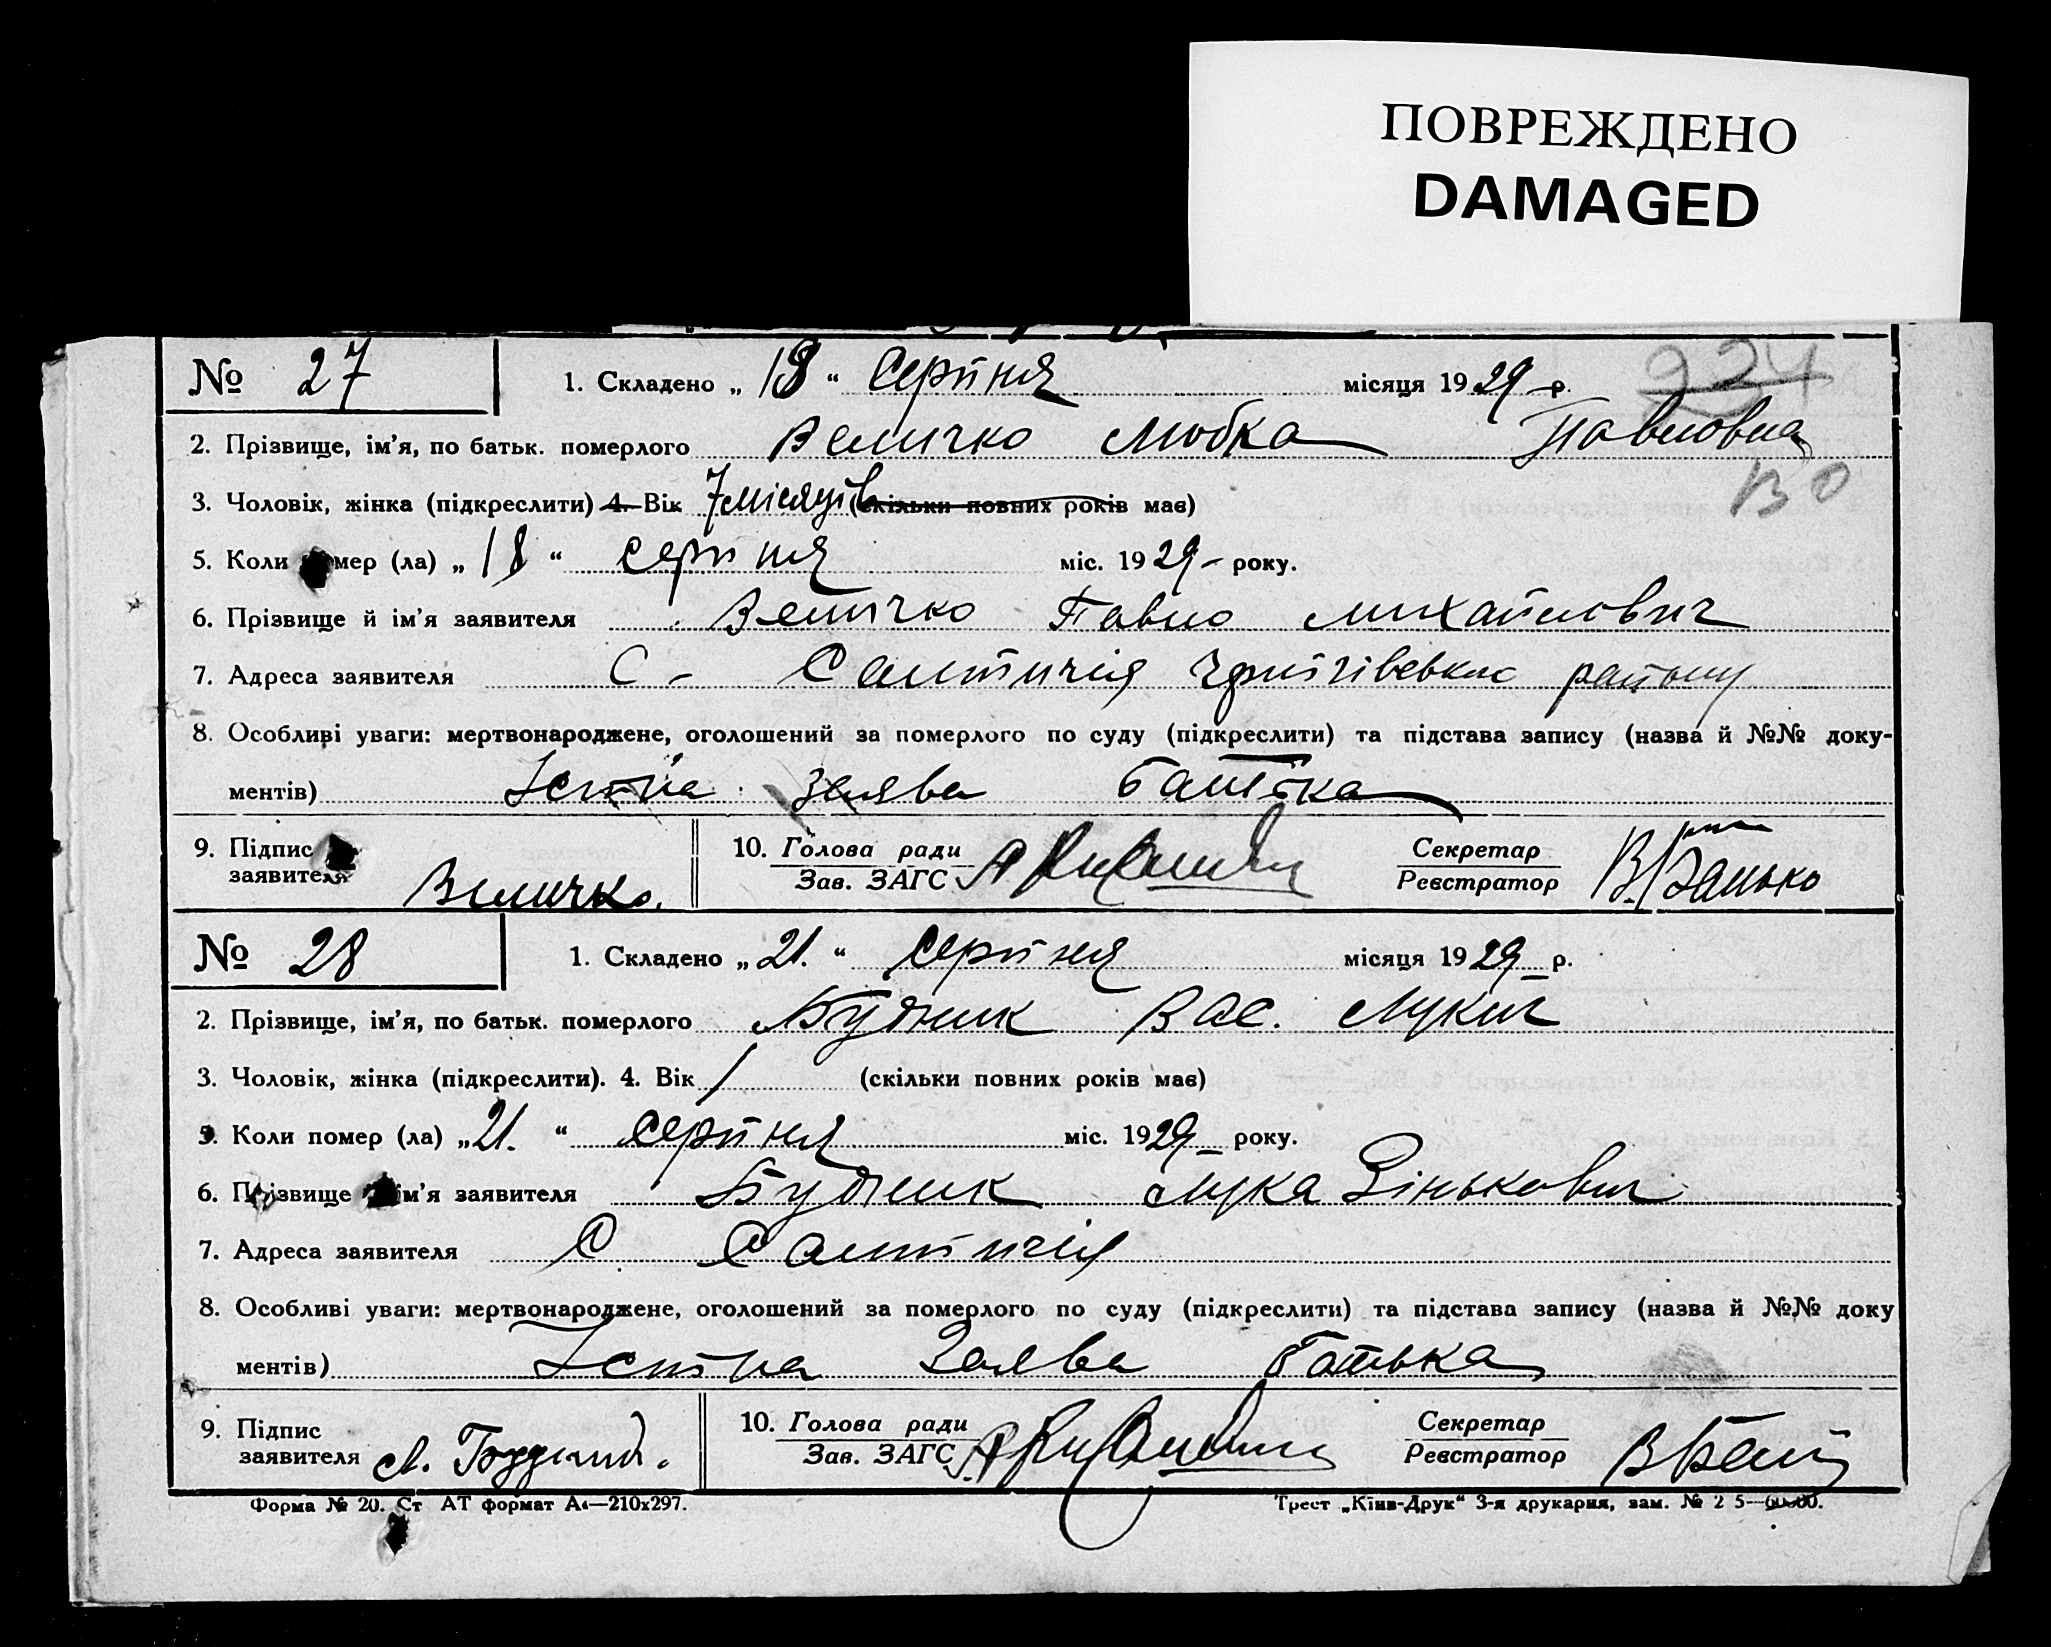 ПОВРЕЖДЕНО
DAMAGED
№ 27 1. Складено „ 18 “ Серпня місяця 1929 р. 224
2. Прізвище, ім’я, по батьк. померлого Величко Любка Павловна
ВО
3. Чоловік, жінка (підкреслити) 4. Вік 7 місяців (скільки повних років має)
5. Коли мер (ла) „ 18 “ серпня міс. 1929 - року.
6. Прізвище й ім’я заявителя Величко Павло Михайлович
7. Адреса заявителя С - Салтичія району
8. Особливі уваги: мертвонароджене, оголошений за померлого по суду (підкреслити) та підстава запису (назва й №№ доку-
ментів) Істна заява батька
9. Підпис заявителя Величко. 10. Голова ради Зав. ЗАГС Секретар Реєстратор
№ 28 1. Складено „ 21. “ серпня місяця 1929 р.
2. Прізвище, ім’я, по батьк. померлого Будник Вас. Лукич
3. Чоловік, жінка (підкреслити). 4. Вік 1 (скільки повних років має)
5. Коли помер (ла) „ 21. “ серпня міс. 1929 року.
6. Прізвище ім’я заявителя Будник Лука Зінькович
7. Адреса заявителя С Салтичія
8. Особливі уваги: мертвонароджене, оголошений за померлого по суду (підкреслити) та підстава запису (назва й №№ доку
ментів) Істна Заява батька
9. Підпис заявителя 10. Голова ради Зав. ЗАГС Секретар Реєстратор
Форма № 20. Ст АТ формат А4—210х297. Трест „Київ-Друк“ 3-я друкарня, зам. № 2 5—